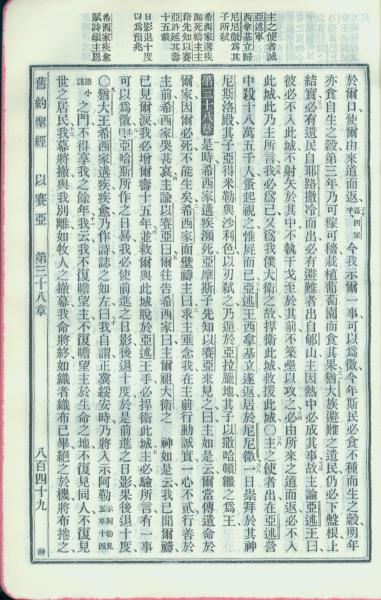 主之使者滅
亞述軍
西拿基立歸
尼尼微為其
子所弒
希西家遘疾
瀕死禱主主
諭先知以賽
亞許延其壽
十五載
日影退十度
以為預兆
希西家疾愈
賦詩頌主恩
於爾口使爾由來道而返希西家乎今我示爾一事可以為徵今年斯民必食不種而生之穀明年
亦食自生之穀第三年乃可稼可穡栽植葡萄園而食其果猶大族遺民仍必下盤根上
結實必有遺民自耶路撒冷而出必有避難者出自郇山主因熱中必成其事故主論亞述王曰
彼必不入此城不射矢於其中不執干戈至於其前不築壘以攻之必由所來之道而返必不入
此城此乃主所言我必為己又為我僕大衛之故捍衛此城救援此城〇主之使者出在亞述營
中殺十八萬五千人蚤起視之惟屍而已亞述王西拿基立遂返居於尼尼微一日崇拜於其神
尼斯洛殿其子亞得米勒與沙利色以刃弒之乃遁於亞拉臘地其子以撒哈頓繼之為王
第三十八章 是時希西家遘疾瀕死亞摩斯子先知以賽亞來見之曰主如是云爾當傳遺命於
爾家因爾必死不能生矣希西家面壁禱主曰求主垂念我在主前行動誠實一心不貳行善於
主前希西家哭甚哀主諭以賽亞曰爾往告希西家曰主爾祖大衛之 神如是云我已聞爾禱
已見爾淚我必增爾壽十五年並救爾與此城脫於亞述王手必捍衛此城主必驗所言有一事
可以為徵亞哈斯所作之日晷我必使前進之日影後退十度於是前進之日影果後退十度
〇猶大王希西家遘疾疾愈乃作詩誌之如左曰我自謂正冀綏安時乃將入示阿勒
之門不得享我之餘年我云我不復瞻望主不復瞻望主於生命之地不復見同人不復見
世之居民我幕將撤與我別離如牧人之撤幕我命將終如織者織布已畢絕之於機將布捲之
舊約聖經 以賽亞 第三十八章 八百四十九